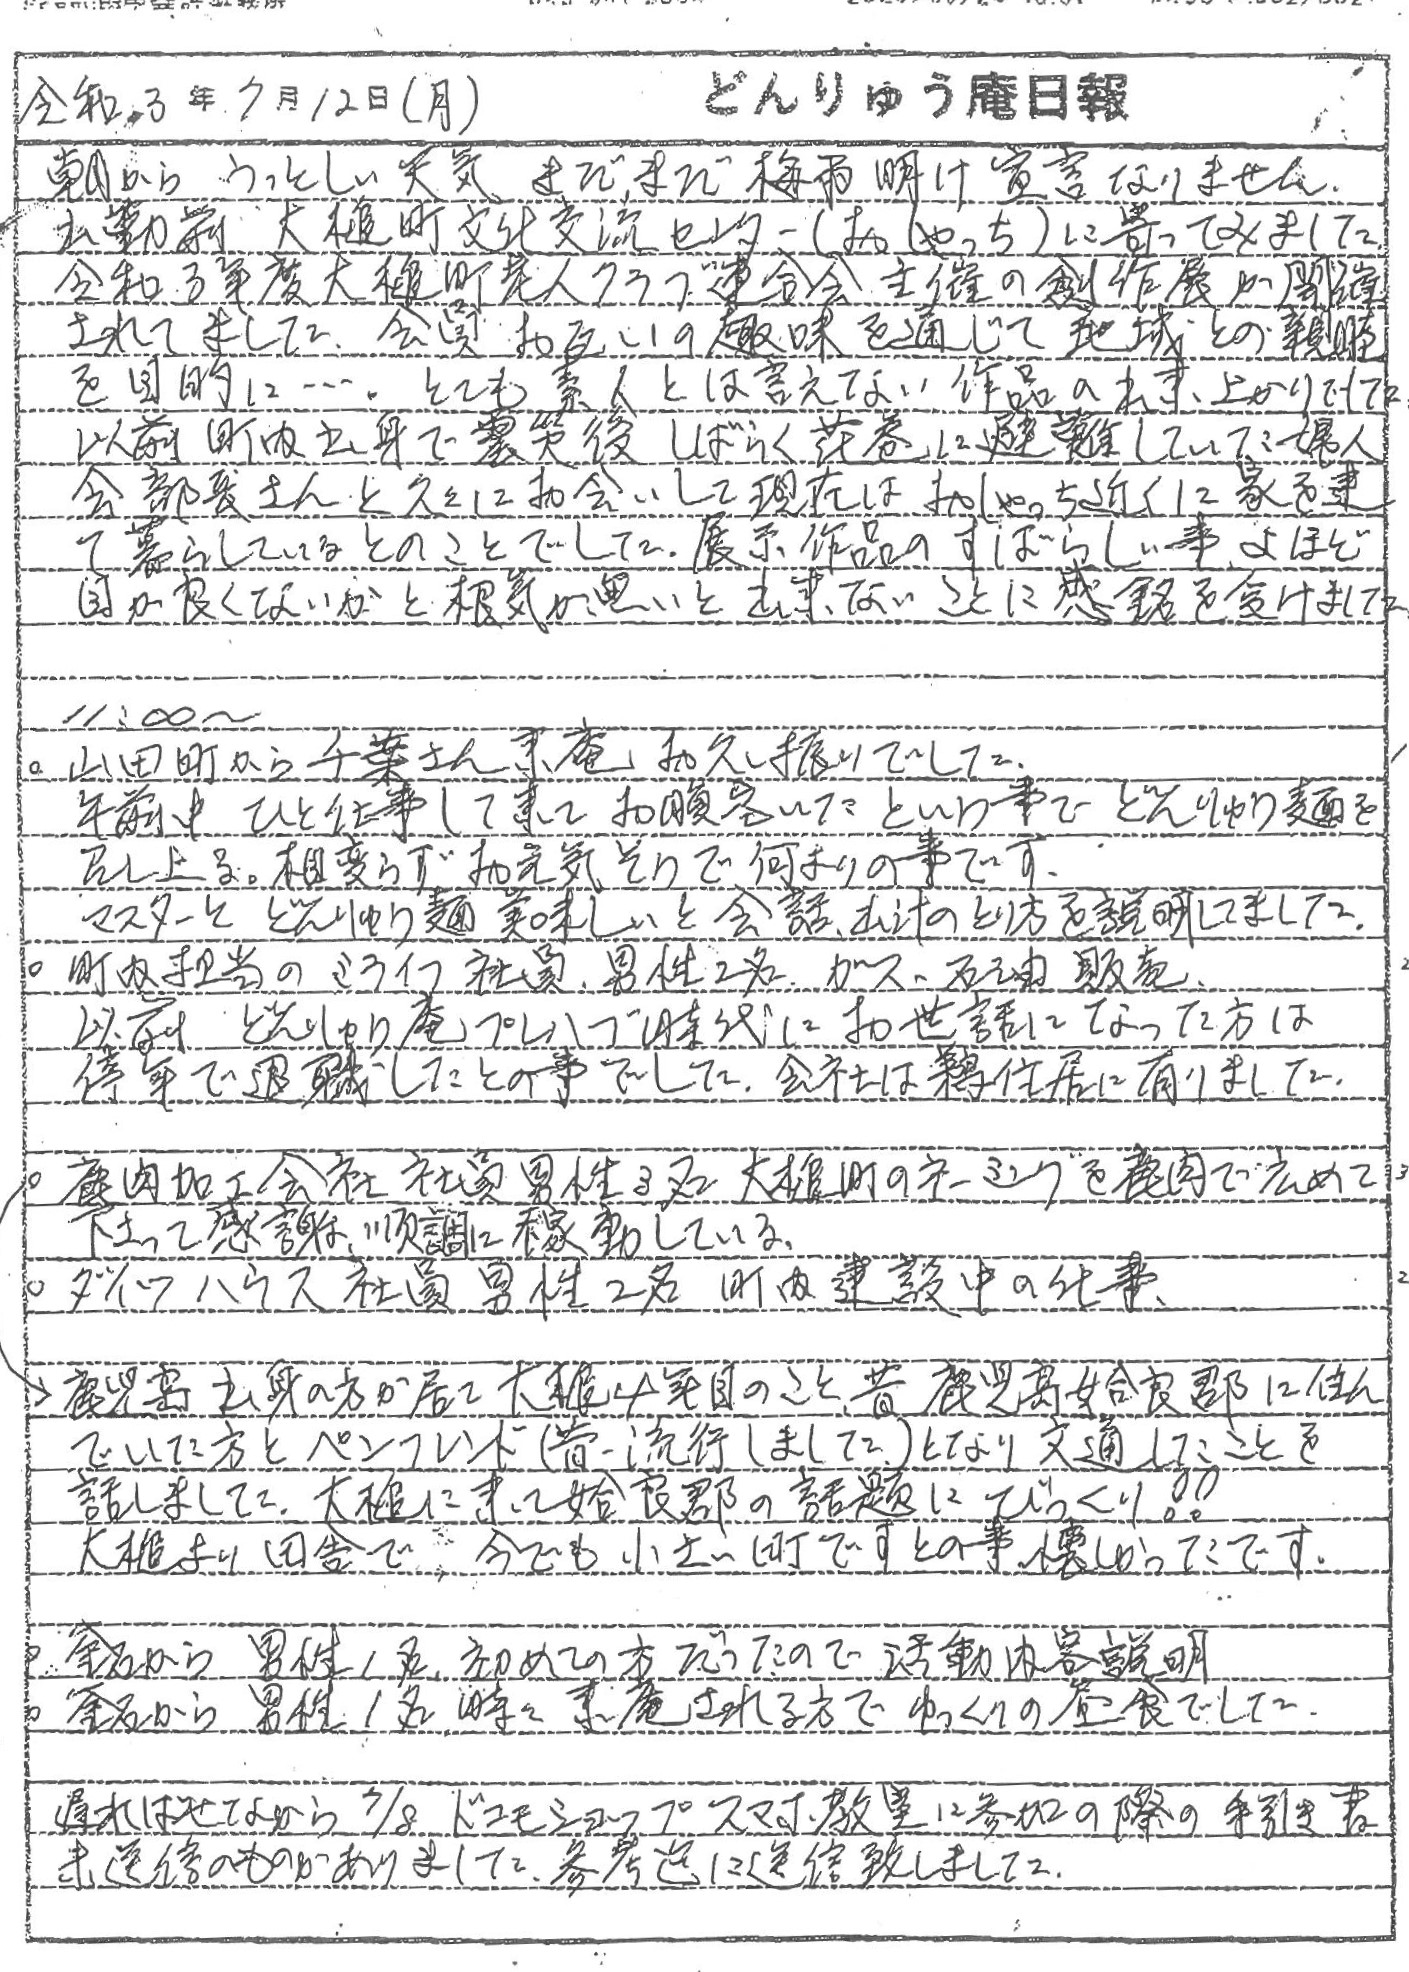 令和 3 年 7 月 12 日 (月) どんりゅう庵日報
朝から うっとしい 天気、まだ、まだ 梅雨 明け 宣言 なりません.
出勤前 大槌町 文化交流 センター (おしゃっち) に寄ってみました.
令和3年度 大槌町老人クラブ連合会 主催の 創作展が開催
されてました. 会員 お互いの 趣味を通じて 地域との 親睦
を目的に…. とても 素人 とは 言えない 作品の出来上がりでした.
以前 町内出身で 震災後 しばらく 花巻に避難していた婦人
会部長さんと 久々にお会いして 現在は おしゃっち近くに 家を建
て暮らしているとのことでした. 展示作品のすばらしい事 よほど
目が良くないかと 根気が悪いと 出来ない ことに 感銘を受けました.
11:00〜
○ 山田町から 千葉さん来庵 お久し振りでした.
午前中 ひと仕事して来て お腹空いた という事で どんりゅう麺を
召し上る。相変らず お元気そうで 何よりの事です.
マスターと どんりゅう麺 美味しいと 会話、出汁のとり方を説明してました.
○ 町内担当の ミライフ 社員、男性2名. ガス、石油 販売、 2
以前 どんりゅう庵 プレハブ時代に お世話に なった方は
停年で 退職したとの事でした. 会社は 鵜住居に有りました.
○ 鹿肉加工会社 社員男性3名 大槌町のネーミングを鹿肉で広めて 3
下さって感謝、順調に稼動している.
○ ダイワハウス 社員 男性2名 町内 建設中の仕事、 2
→ 鹿児島 出身の方が居て 大槌4年目のこと、昔 鹿児島姶良郡に住ん
でいた方と ペンフレンド (昔、流行しました) となり 文通したことを
話しました. 大槌に来て姶良郡の話題に びっくり!!
大槌より 田舎で 今でも 小さい 町ですとの事、懐しかったです.
○ 釜石から 男性1名、初めての方だったので 活動内容説明
○ 釜石から 男性1名、時々 来庵される方で ゆっくりの 昼食でした.
遅ればせながら 7/8 ドコモショップ スマホ教室に参加の際の 手引き書
未送信のものがありました. 参考迄に送信致しました.